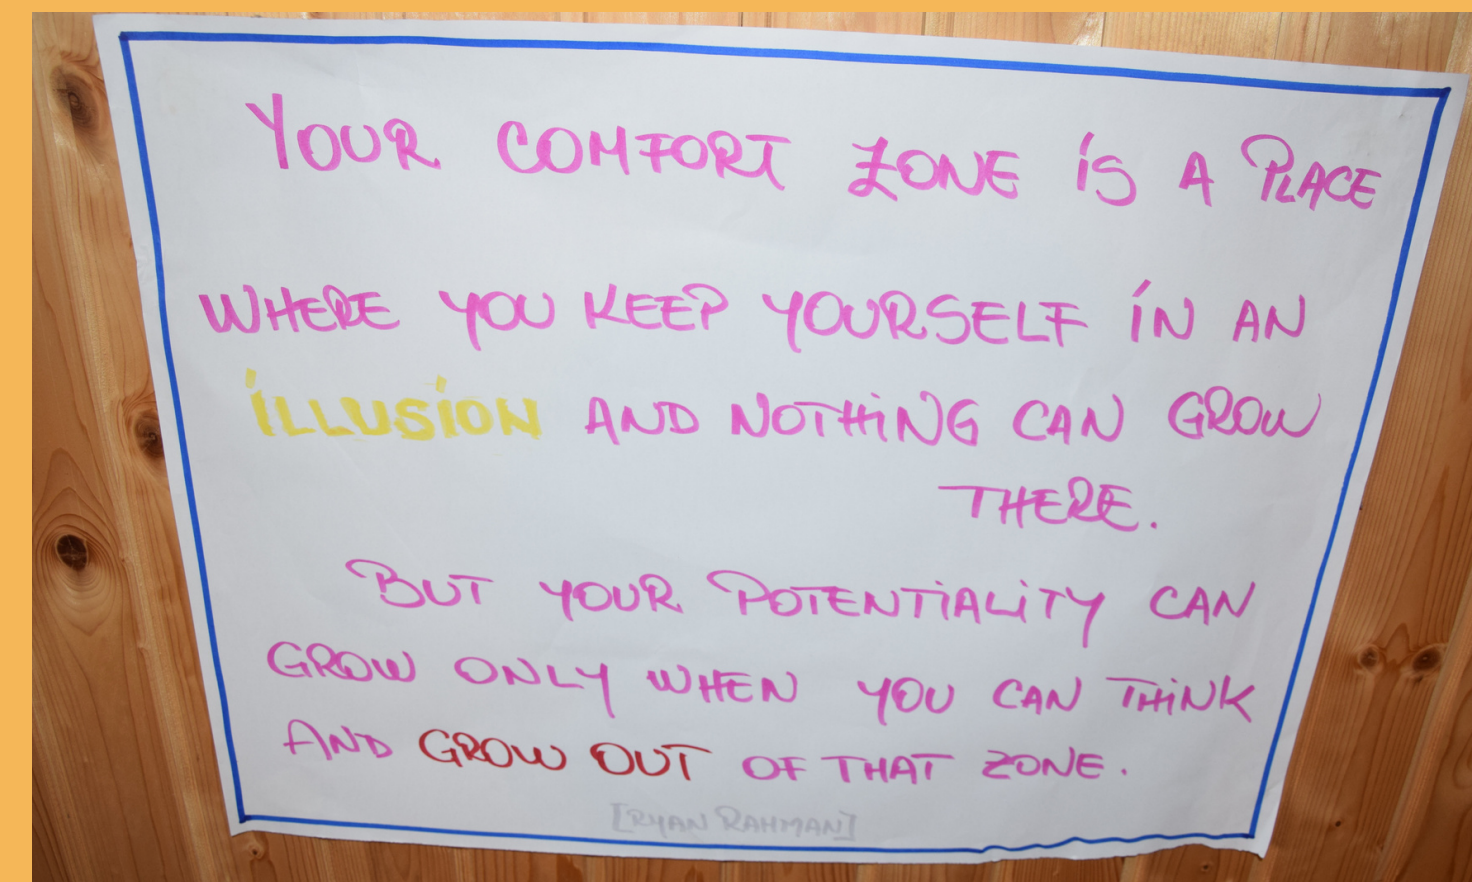 YOUR COMFORT ZONE IS A PLACE
WHERE YOU KEEP YOURSELF IN AN
ILLUSION AND NOTHING CAN GROW
THERE.
BUT YOUR POTENTIALITY CAN
GROW ONLY WHEN YOU CAN THINK
AND GROW OUT OF THAT ZONE.
[RYAN RAHMAN]